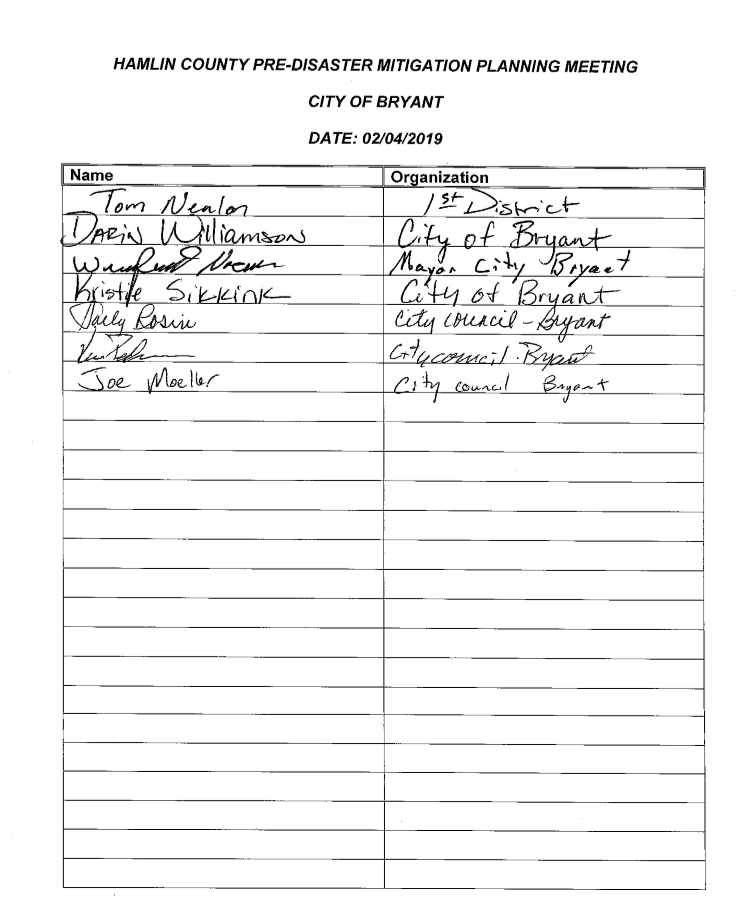 HAMLIN COUNTY PRE-DISASTER MITIGATION PLANNING MEETING
CITY OF BRYANT
DATE: 02/04/2019
Name Organization
Tom Nealon 1st District
DARIN Williamson City of Bryant
Mayor City Bryant
Kristie SIKKINK City of Bryant
Rosin City council - Bryant
City council - Bryant
Joe Moeller City council Bryant